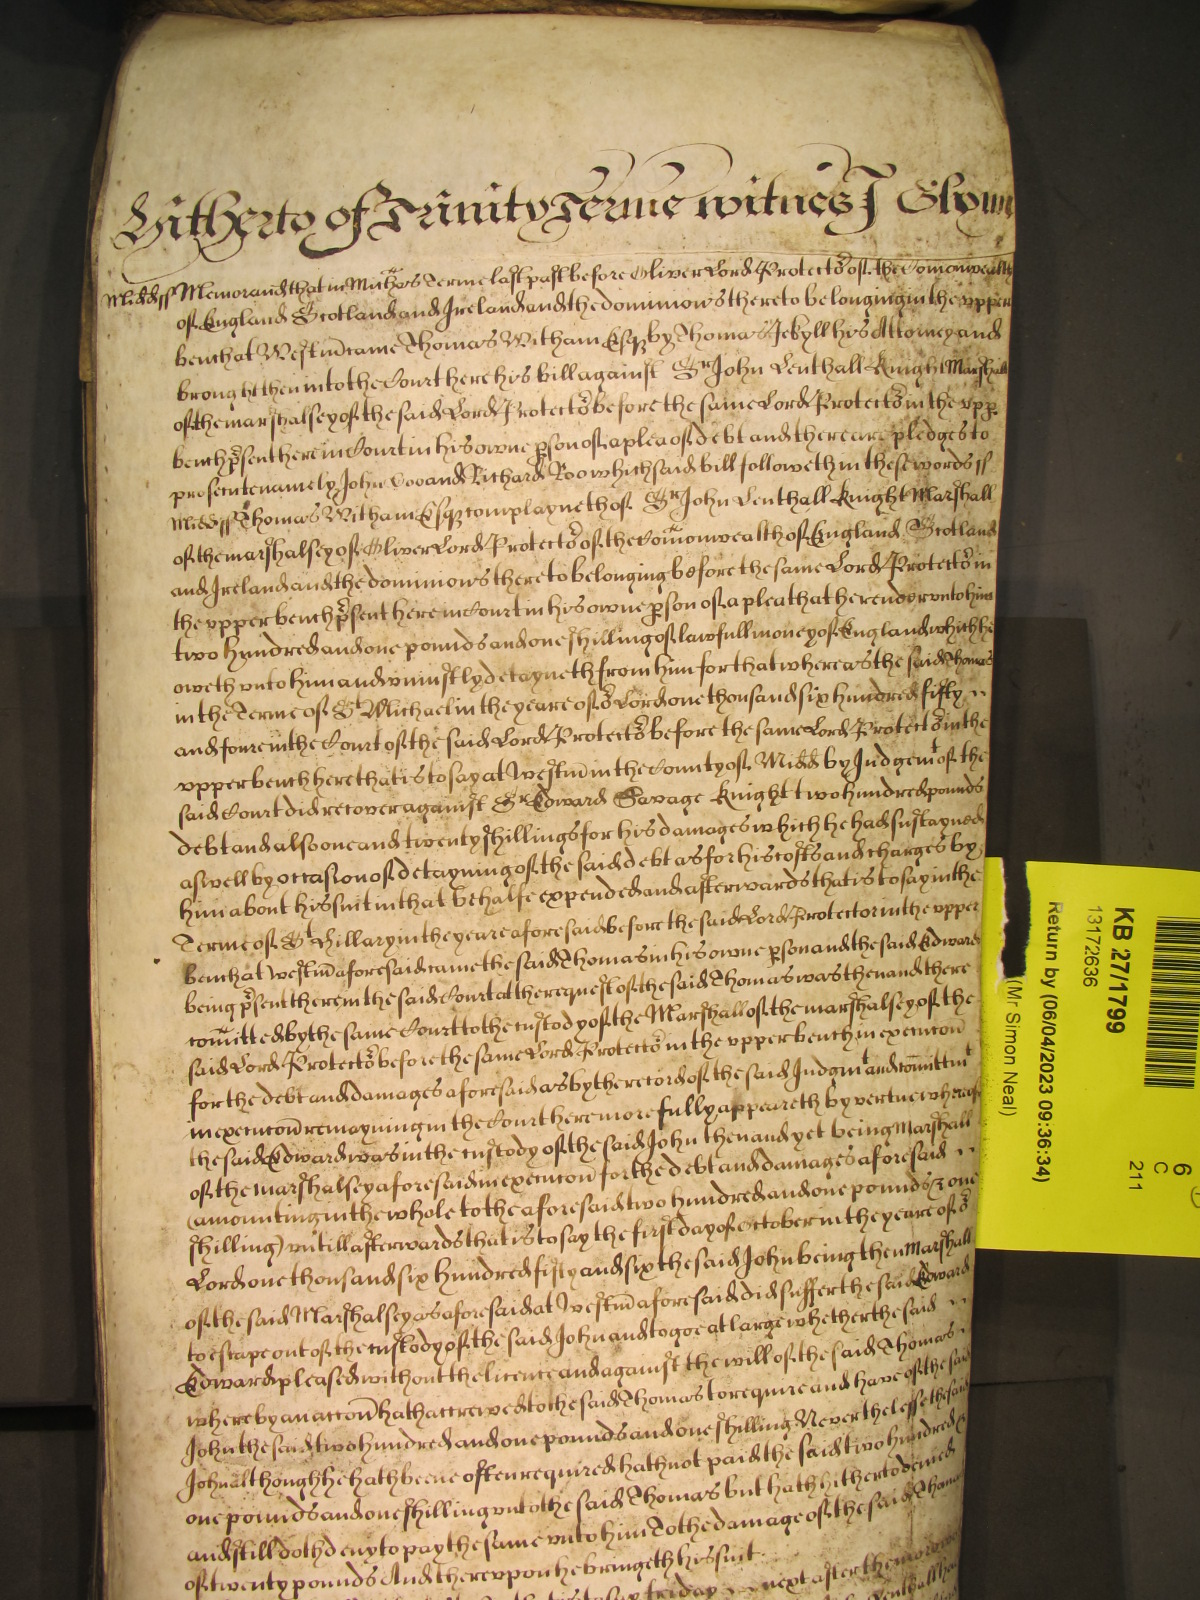 Hitherto of Trinity Terme witnes J Glynn
Midd ss Memorand that in Michas Terme last past before Oliver Lord Protector of the Comonwealth
of England Scotland and Ireland and the dominions thereto belonging in the upper
bench at Westm came Thomas Witham Esqr by Thomas Jekyll his Attorney and
brought then into the Court here his bill against Sr John Lenthall Knight Marshall
of the marshalsey of the said Lord Protector before the same Lord Protector in the upp
bench psent here in Court in his owne pson of a plea of debt and there are pledges to
prosecute namely John Doo and Richard Roo which said bill followeth in these words ss
Midd ss Thomas Witham Esqr complayneth of Sr John Lenthall Knight Marshall
of the marshalsey of Oliver Lord Protector of the Comonwealth of England Scotland
and Ireland and the dominions thereto belonging before the same Lord Protector in
the upper bench psent here in Court in his owne pson of a plea that he render unto him
two hundred and one pounds and one shilling of lawfull money of England which he
oweth unto him and uniustly detayneth from him for that whereas the said Thomas
in the Terme of St Michael in the yeare of or Lord one thousand six hundred fifty
and foure in the Court of the said Lord Protector before the same Lord Protector in the
upper bench here that is to say at Westm in the County of Midd by Judgemt of the
said Court did recover against Sr Edward Savage Knight two hundred pounds
debt and also one and twenty shillings for his damages which he had sustayned
aswell by occasion of detayning of the said debt as for his costs and charges by
him about his suit in that behalfe expended and afterwards that is to say in the
Terme of St Hillary in the yeare aforesaid before the said Lord Protector in the upper
bench at Westm aforesaid came the said Thomas in his owne pson and the said Edward
being psent there in the said Court at the request of the said Thomas was then and there
comitted by the same Court to the custody of the Marshall of the marshalsey of the
said Lord Protector before the same Lord Protector in the upper bench in execucon
for the debt and damages aforesaid as by the record of the said Judgmt and comittmt
in execucon remayning in the Court here more fully appeareth by vertue whereof
the said Edward was in the custody of the said John then and yet being Marshall
of the marshalsey aforesaid in execucon for the debt and damages aforesaid
(amounting in the whole to the aforesaid two hundred and one pounds & one
shilling) untill afterwards that is to say the first day of October in the yeare of or
Lord one thousand six hundred fifty and six the said John being then Marshall
of the said Marshalsey as aforesaid at Westm aforesaid did suffer the said Edward
to escape out of the custody of the said John and to goe at large whether the said
Edward pleased without the licence and against the will of the said Thomas
whereby an accon hath accrewed to the said Thomas to require and have of the said
John the said two hundred and one pounds and one shilling Neverthelesse the said
John although he hath beene often required hath not paid the said two hundred &
one pounds and one shilling unto the said Thomas but hath hitherto denied
and still doth deny to pay the same unto him To the damage of the said Thomas
of twenty pounds And thereupon he bringeth his suit
friday next after the morrow
KB 27/1799
13172636
Return by (06/04/2023 09:36:34)
(Mr Simon Neal)
6
C
211